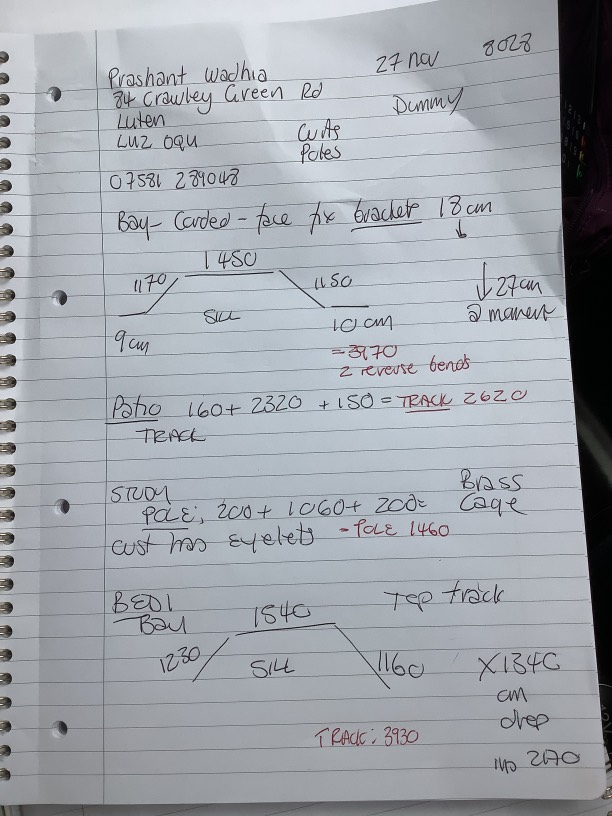 27 nov 8028
Prashant Wadhia
84 Crawley Green Rd
Dummy
Luten
LU2 0QU
Poles
07581 289048
Bay - Corded - face fix brackets 18cm
↓
1450
1170 1150
SILL
9cm 10cm
↓ 27cm
@ moment
= 3970
2 reverse bends
Patio 160 + 2320 + 150 = TRACK 2620
TRACK
STUDY
Brass
Cage
POLE: 200 + 1060 + 200=
cust has eyelets - POLE 1460
BED1
Bay
Top track
1540
1230 1160
SILL
X1340
cm
drop
TRACK: 3930